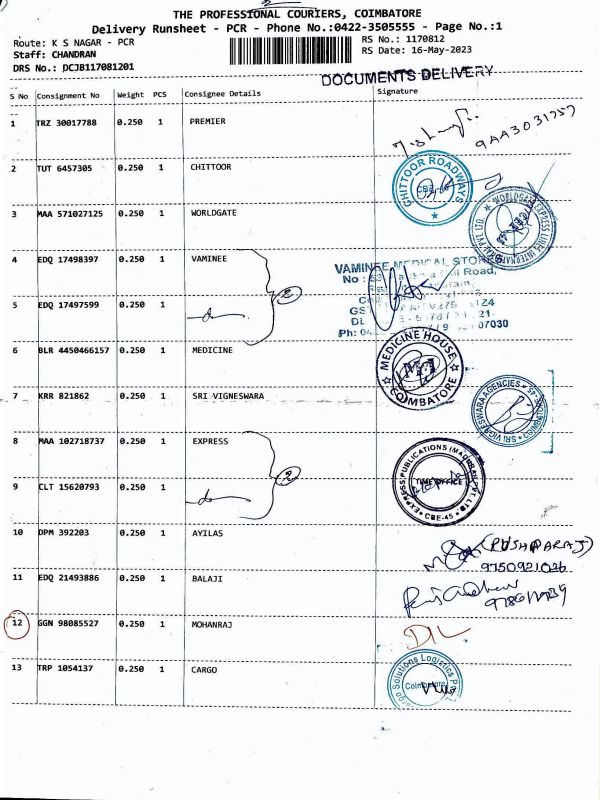 THE PROFESSIONAL COURIERS, COIMBATORE
Delivery Runsheet - PCR - Phone No.:0422-3505555 - Page No.:1
Route: K S NAGAR - PCR
RS No.: 1170812
Staff: CHANDRAN
RS Date: 16-May-2023
DRS No.: DCJB117081201
DOCUMENTS DELIVERY
S No Consignment No Weight PCS Consignee Details Signature
1 TRZ 30017788 0.250 1 PREMIER
2 TUT 6457305 0.250 1 CHITTOOR
CHITTOOR ROADWAYS
CBE
3 MAA 571027125 0.250 1 WORLDGATE
WORLDGATE EXPRESS LINES INTERNATIONAL PVT LTD.
4 EDQ 17498397 0.250 1 VAMINEE
VAMINEE MEDICAL STORES
No :
Road,
5 EDQ 17497599 0.250 1
2
GST
DL
Ph: 04 07030
6 BLR 4450466157 0.250 1 MEDICINE
MEDICINE HOUSE
COIMBATORE
7 KRR 821862 0.250 1 SRI VIGNESWARA
SRI VIGNESWARA AGENCIES
8 MAA 102718737 0.250 1 EXPRESS
EXPRESS PUBLICATIONS (MADURAI) PVT LTD
TIME OFFICE
CBE-45
9 CLT 15620793 0.250 1
2
10 DPM 392203 0.250 1 AYILAS
(PUSHPARAJ)
9750921026
11 EDQ 21493886 0.250 1 BALAJI
12 GGN 98085527 0.250 1 MOHANRAJ
D/L
13 TRP 1054137 0.250 1 CARGO
Solutions Logistics
Coimbatore